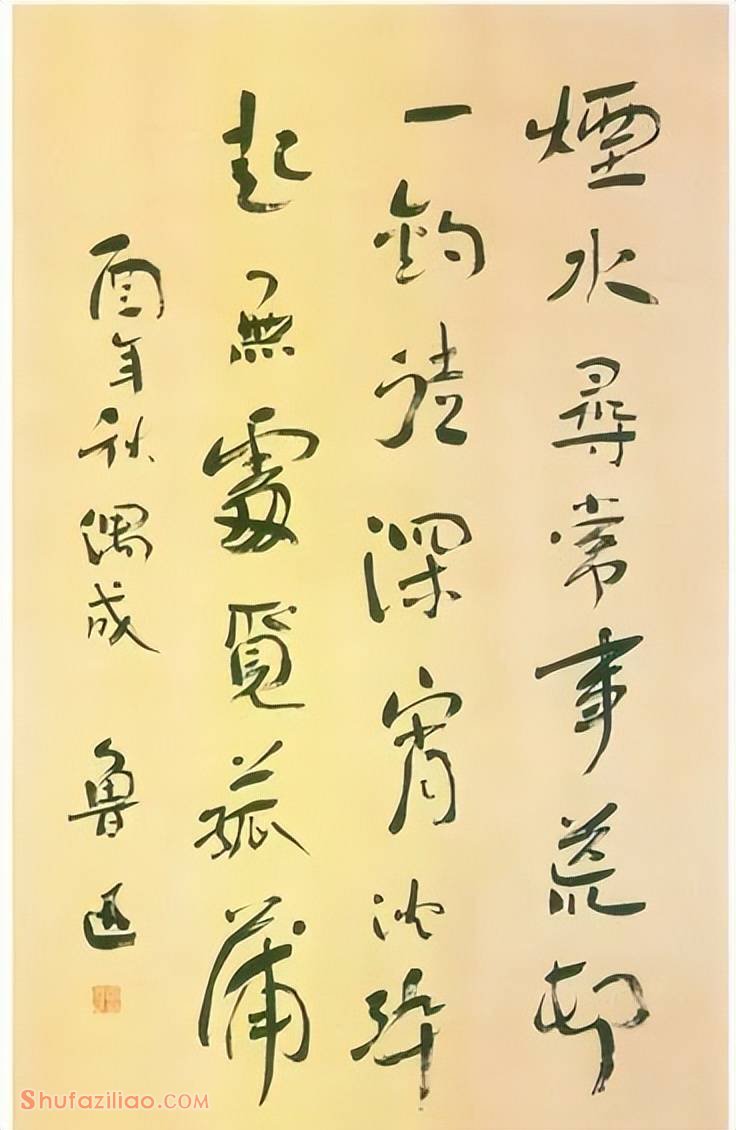 煙水尋常事荒邨
一釣徒深宵沈醉
起無處覓菰蒲
酉年秋偶成 魯迅
Shufaziliao.COM